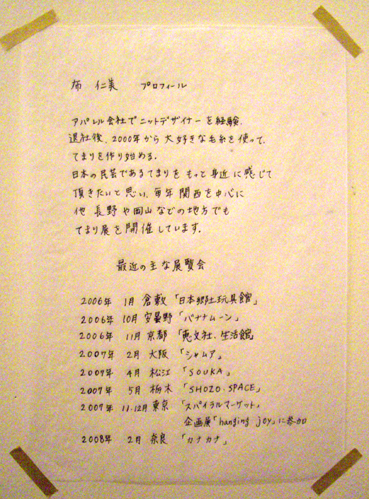 柿 仁美 プロフィール
アパレル会社でニットデザイナーを経験。
退社後、2000年から大好きな毛糸を使って、
てまりを作り始める。
日本の民芸であるてまりをもっと身近に感じて
頂きたいと思い、毎年関西を中心に
他 長野や岡山などの地方でも
てまり展を開催しています。
最近の主な展覧会
2006年 1月 倉敷「日本郷土玩具館」
2006年 10月 安曇野「バナナムーン」
2006年 11月 京都「恵文社、生活館」
2007年 2月 大阪「シャムア」
2007年 4月 松江「SOUKA」
2007年 5月 栃木「SHOZO SPACE」
2007年 11.12月 東京「スパイラルマーケット」
企画展「hanging joy」に参加
2008年 2月 奈良「カナカナ」